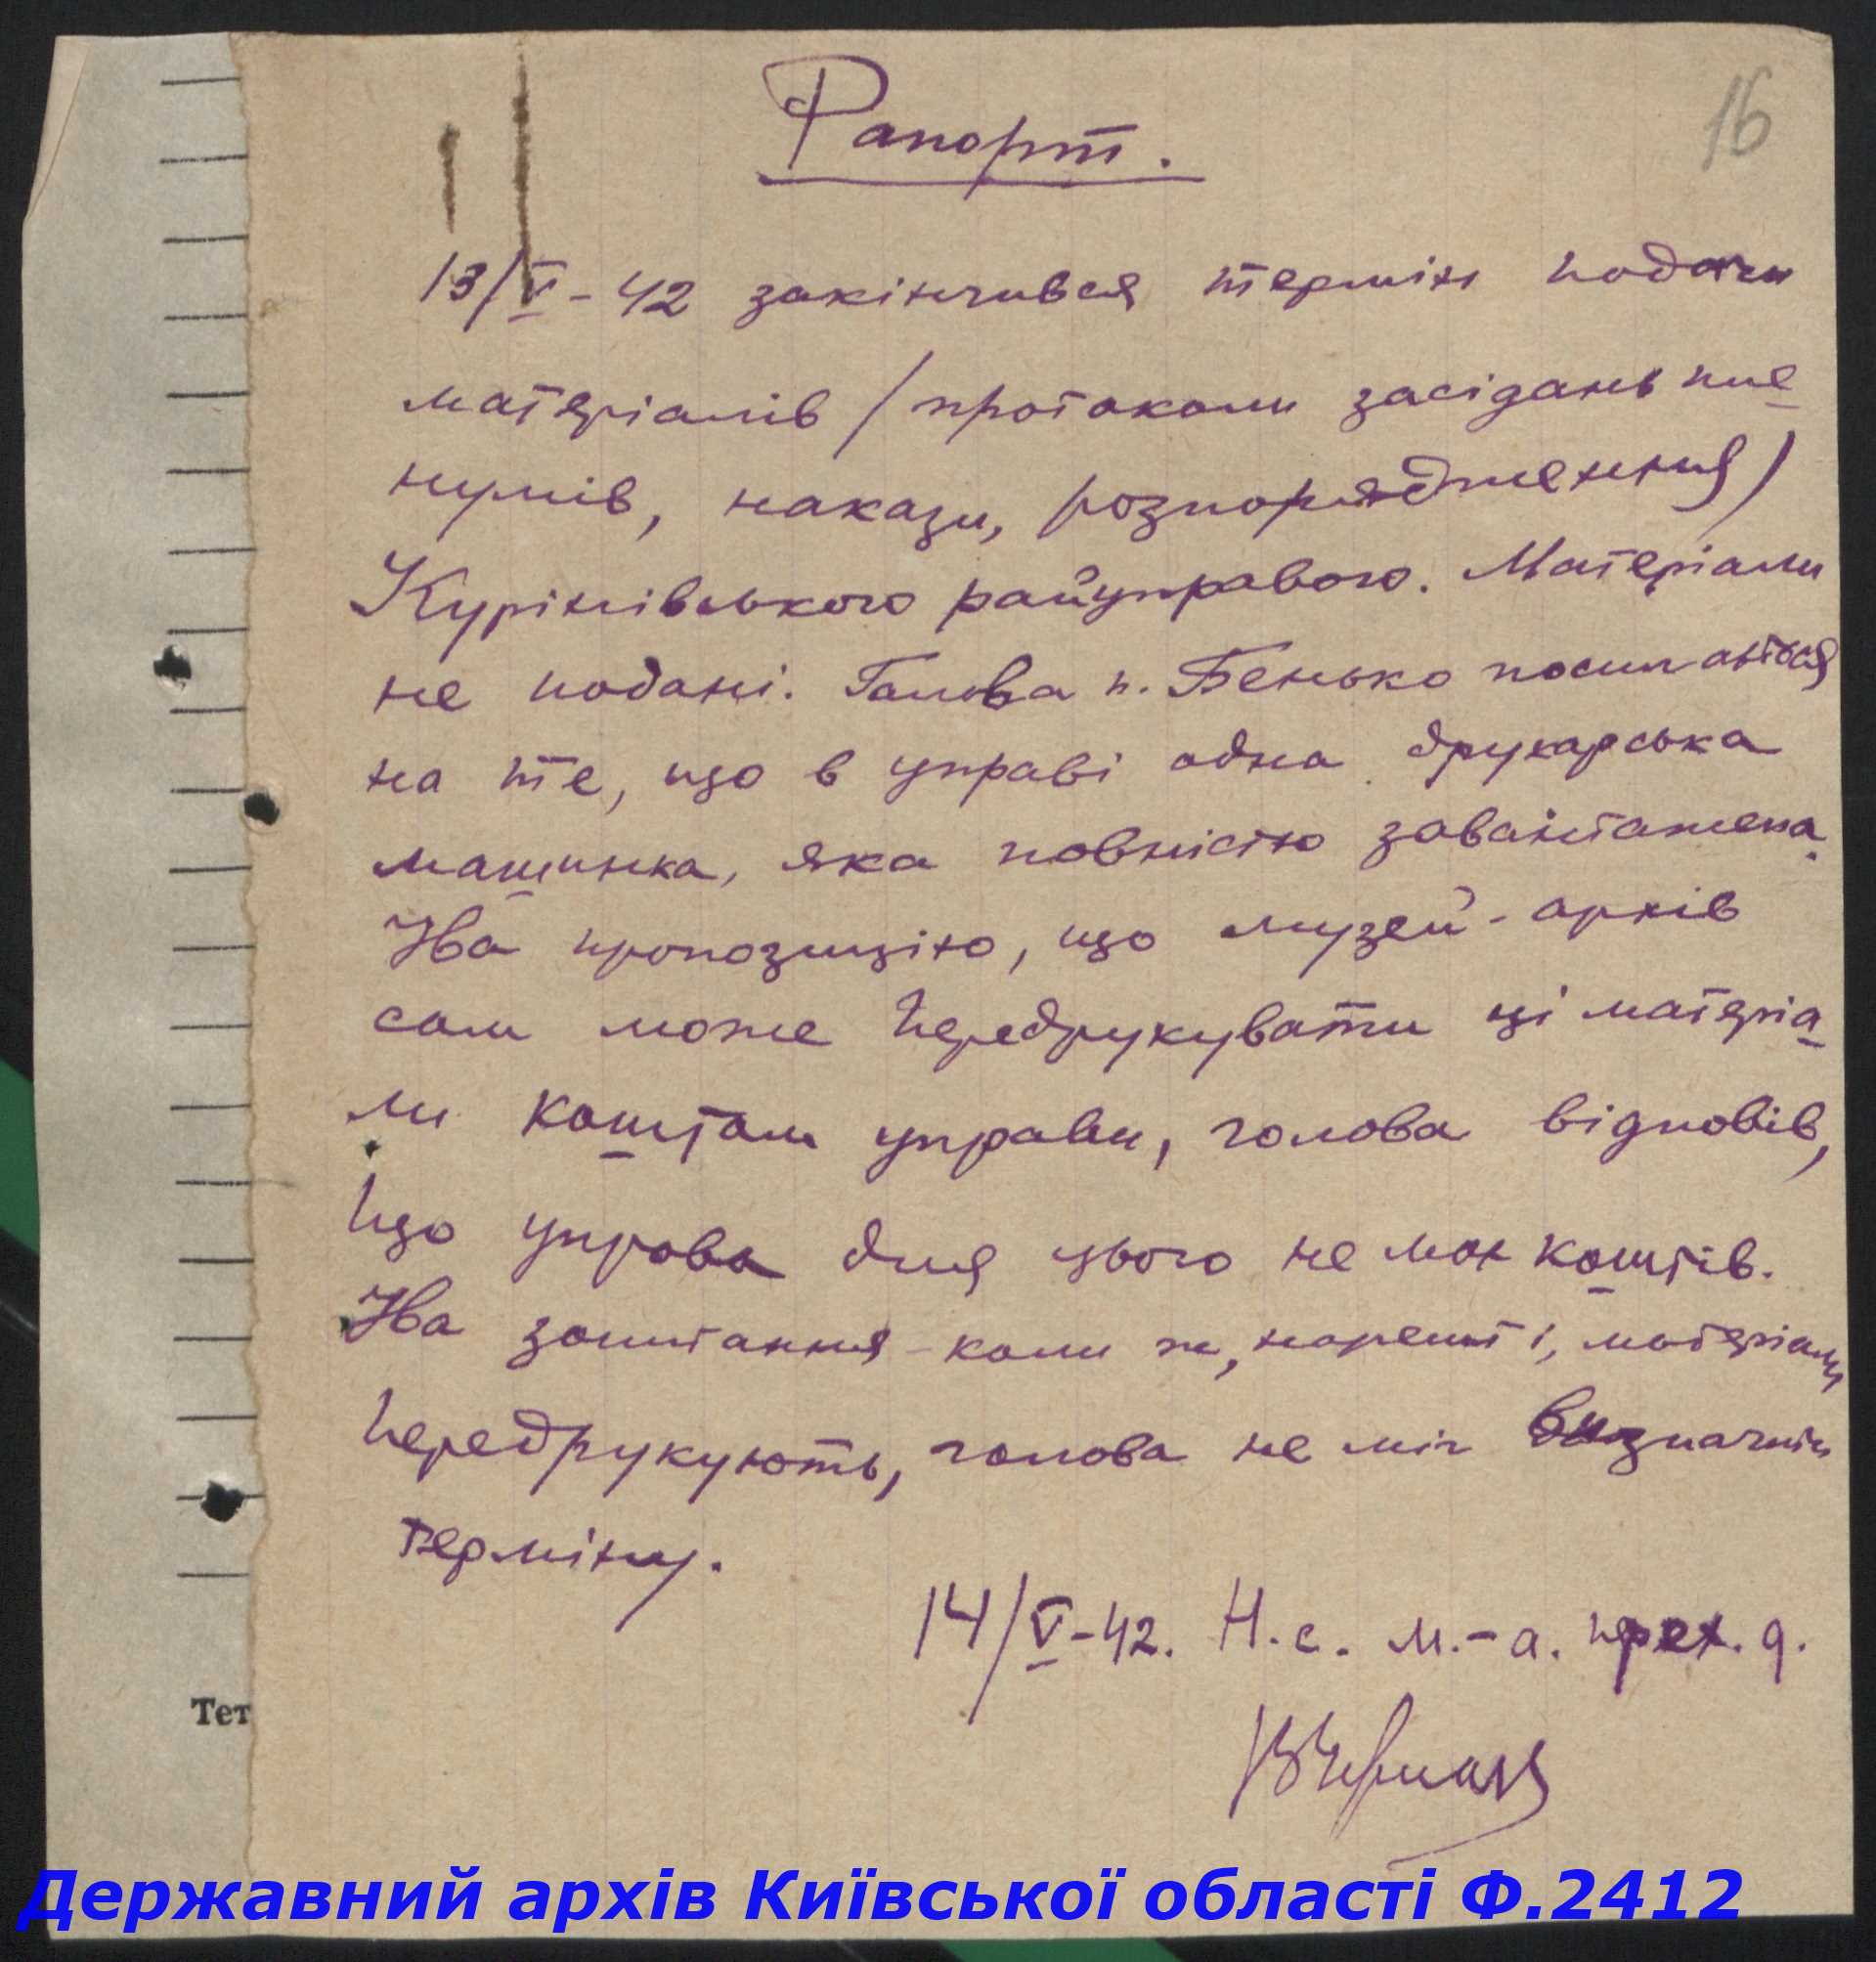 16
Рапорт.
13/V-42 закінчився термін подачи
матеріалів /протоколи засідань пле
нумів, накази, розпорядження/
Куренівською райуправою. Матеріали
не подані. Голова п. Бенько посилається
на те, що в управі одна друкарська
машинка, яка повністю завантажена.
На пропозицію, що музей-архів
сам може передрукувати ці матеріа
ли коштом управи, голова відповів,
що управа для цього не має коштів.
На запитання - коли ж, нарешті, матеріали
передрукують, голова не міг визначити
терміну.
14/V-42. Н.с. м.-а. перех. д.
Тет
Державний архів Київської області Ф.2412